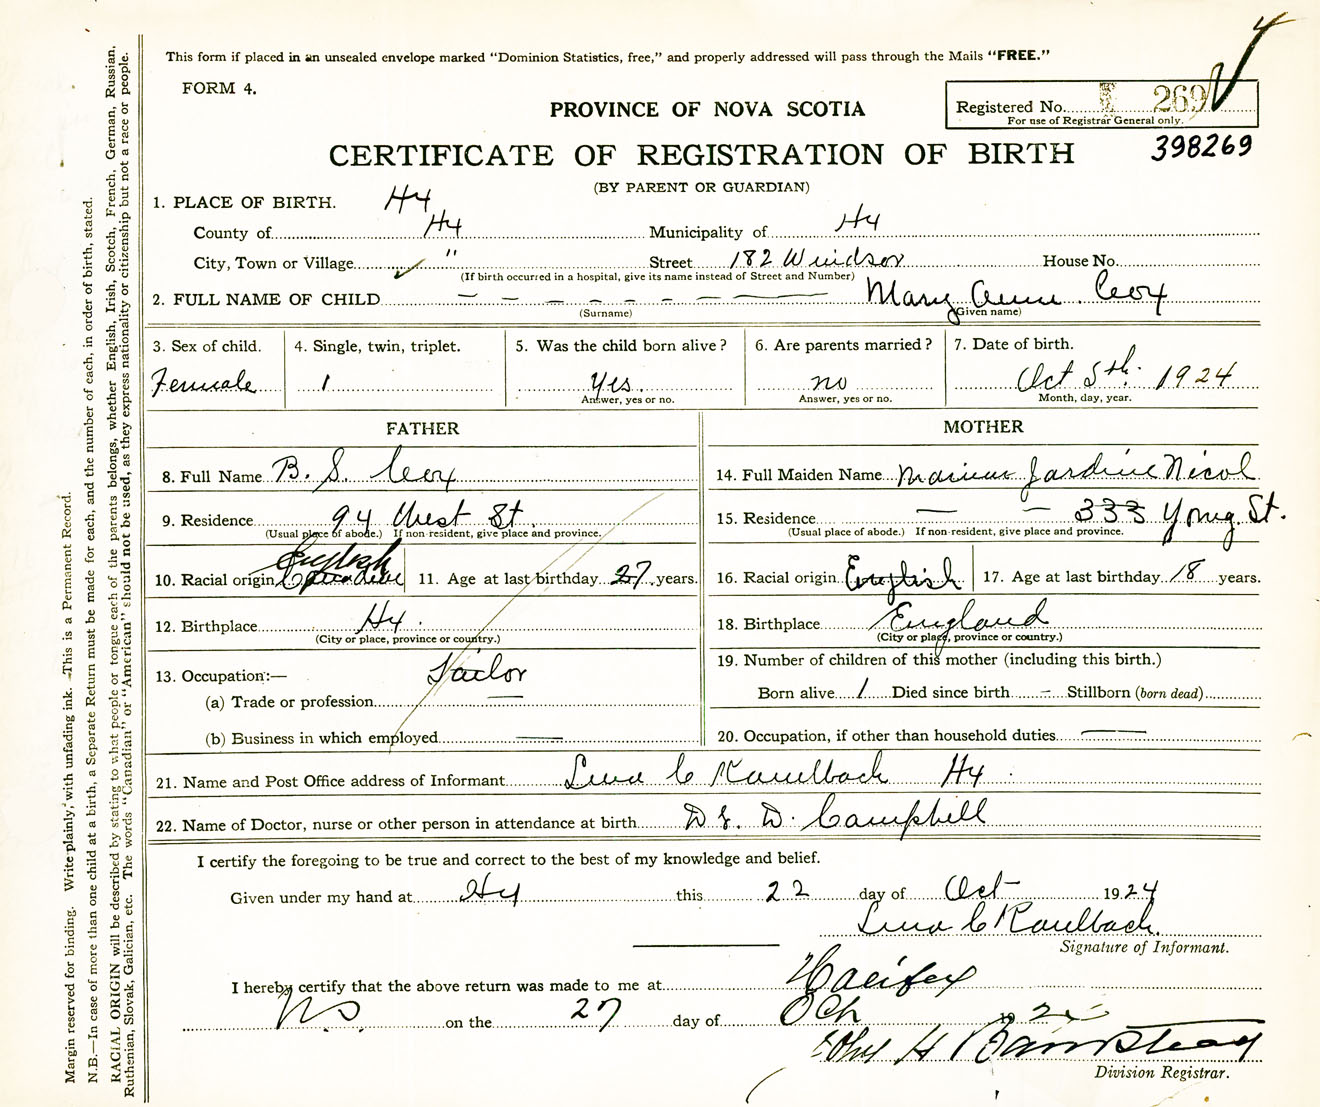 This form if placed in an unsealed envelope marked "Dominion Statistics, free," and properly addressed will pass through the Mails "FREE."
FORM 4.
PROVINCE OF NOVA SCOTIA
Registered No. 269
For use of Registrar General only.
CERTIFICATE OF REGISTRATION OF BIRTH
398269
(BY PARENT OR GUARDIAN)
1. PLACE OF BIRTH. Hx
County of Hx Municipality of Hx
City, Town or Village " Street 182 Windsor House No.
(If birth occurred in a hospital, give its name instead of Street and Number)
2. FULL NAME OF CHILD Mary Ann Cox
(Surname) (Given name)
3. Sex of child. 4. Single, twin, triplet. 5. Was the child born alive? 6. Are parents married? 7. Date of birth.
Female 1 Yes. no Oct 5th 1924
Answer, yes or no. Answer, yes or no. Month, day, year.
FATHER MOTHER
8. Full Name B. S. Cox 14. Full Maiden Name Jardine Nicol
9. Residence 94 West St. 15. Residence — — 333 Young St.
(Usual place of abode.) If non-resident, give place and province. (Usual place of abode.) If non-resident, give place and province.
English
10. Racial origin Canadian 11. Age at last birthday 27 years. 16. Racial origin English 17. Age at last birthday 18 years.
12. Birthplace Hx. 18. Birthplace England
(City or place, province or country.) (City or place, province or country.)
13. Occupation:— Tailor 19. Number of children of this mother (including this birth.)
(a) Trade or profession — Born alive 1 Died since birth - Stillborn (born dead)
(b) Business in which employed — 20. Occupation, if other than household duties —
21. Name and Post Office address of Informant Lena C Kaulbach Hx.
22. Name of Doctor, nurse or other person in attendance at birth D. Campbell
I certify the foregoing to be true and correct to the best of my knowledge and belief.
Given under my hand at Hx this 22 day of Oct 1924
Lena C Kaulbach.
Signature of Informant.
I hereby certify that the above return was made to me at Halifax
N.S on the 27 day of Oct 24
John H Barnstead
Division Registrar.
Margin reserved for binding. Write plainly, with unfading ink.—This is a Permanent Record.
N.B.—In case of more than one child at a birth, a Separate Return must be made for each, and the number of each, in order of birth, stated.
RACIAL ORIGIN will be described by stating to what people or tongue each of the parents belongs, whether English, Irish, Scotch, French, German, Russian,
Ruthenian, Slovak, Galician, etc. The words "Canadian" or "American" should not be used, as they express nationality or citizenship but not a race or people.